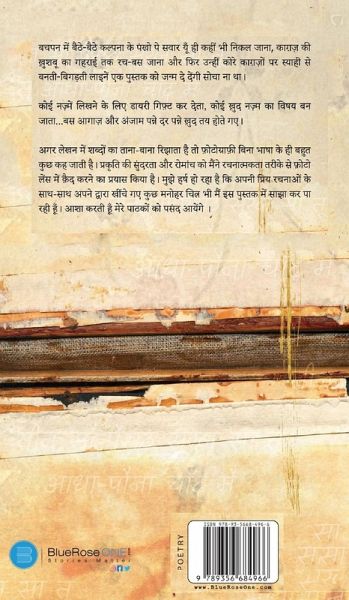 बचपन में बैठे-बैठे कल्पना के पंखो पे सवार यूँ ही कहीं भी निकल जाना, काग़ज़ की
ख़ुशबू का गहराई तक रच-बस जाना और फिर उन्हीं कोरे काग़ज़ों पर स्याही से
बनती-बिगड़ती लाइनें एक पुस्तक को जन्म दे देंगी सोचा ना था।
कोई नज़्में लिखने के लिए डायरी गिफ़्ट कर देता, कोई ख़ुद नज़्म का विषय बन
जाता...बस आगाज़ और अंजाम पन्ने दर पन्ने ख़ुद तय होते गए।
अगर लेखन में शब्दों का ताना-बाना रिझाता है तो फ़ोटोग्राफ़ी बिना भाषा के ही बहुत
कुछ कह जाती है। प्रकृति की सुंदरता और रोमांच को मैंने रचनात्मकता तरीके से फ़ोटो
लेंस में क़ैद करने का प्रयास किया है। मुझे हर्ष हो रहा है कि अपनी प्रिय रचनाओं के
साथ-साथ अपने द्वारा खींचे गए कुछ मनोहर चित्र भी मैं इस पुस्तक में साझा कर पा
रही हूँ। आशा करती हूँ मेरे पाठकों को पसंद आयेंगे ।
BlueRoseONE!
Stories Matter
POETRY
ISBN 978-93-5668-496-6
9 789356 684966
www.BlueRoseOne.com